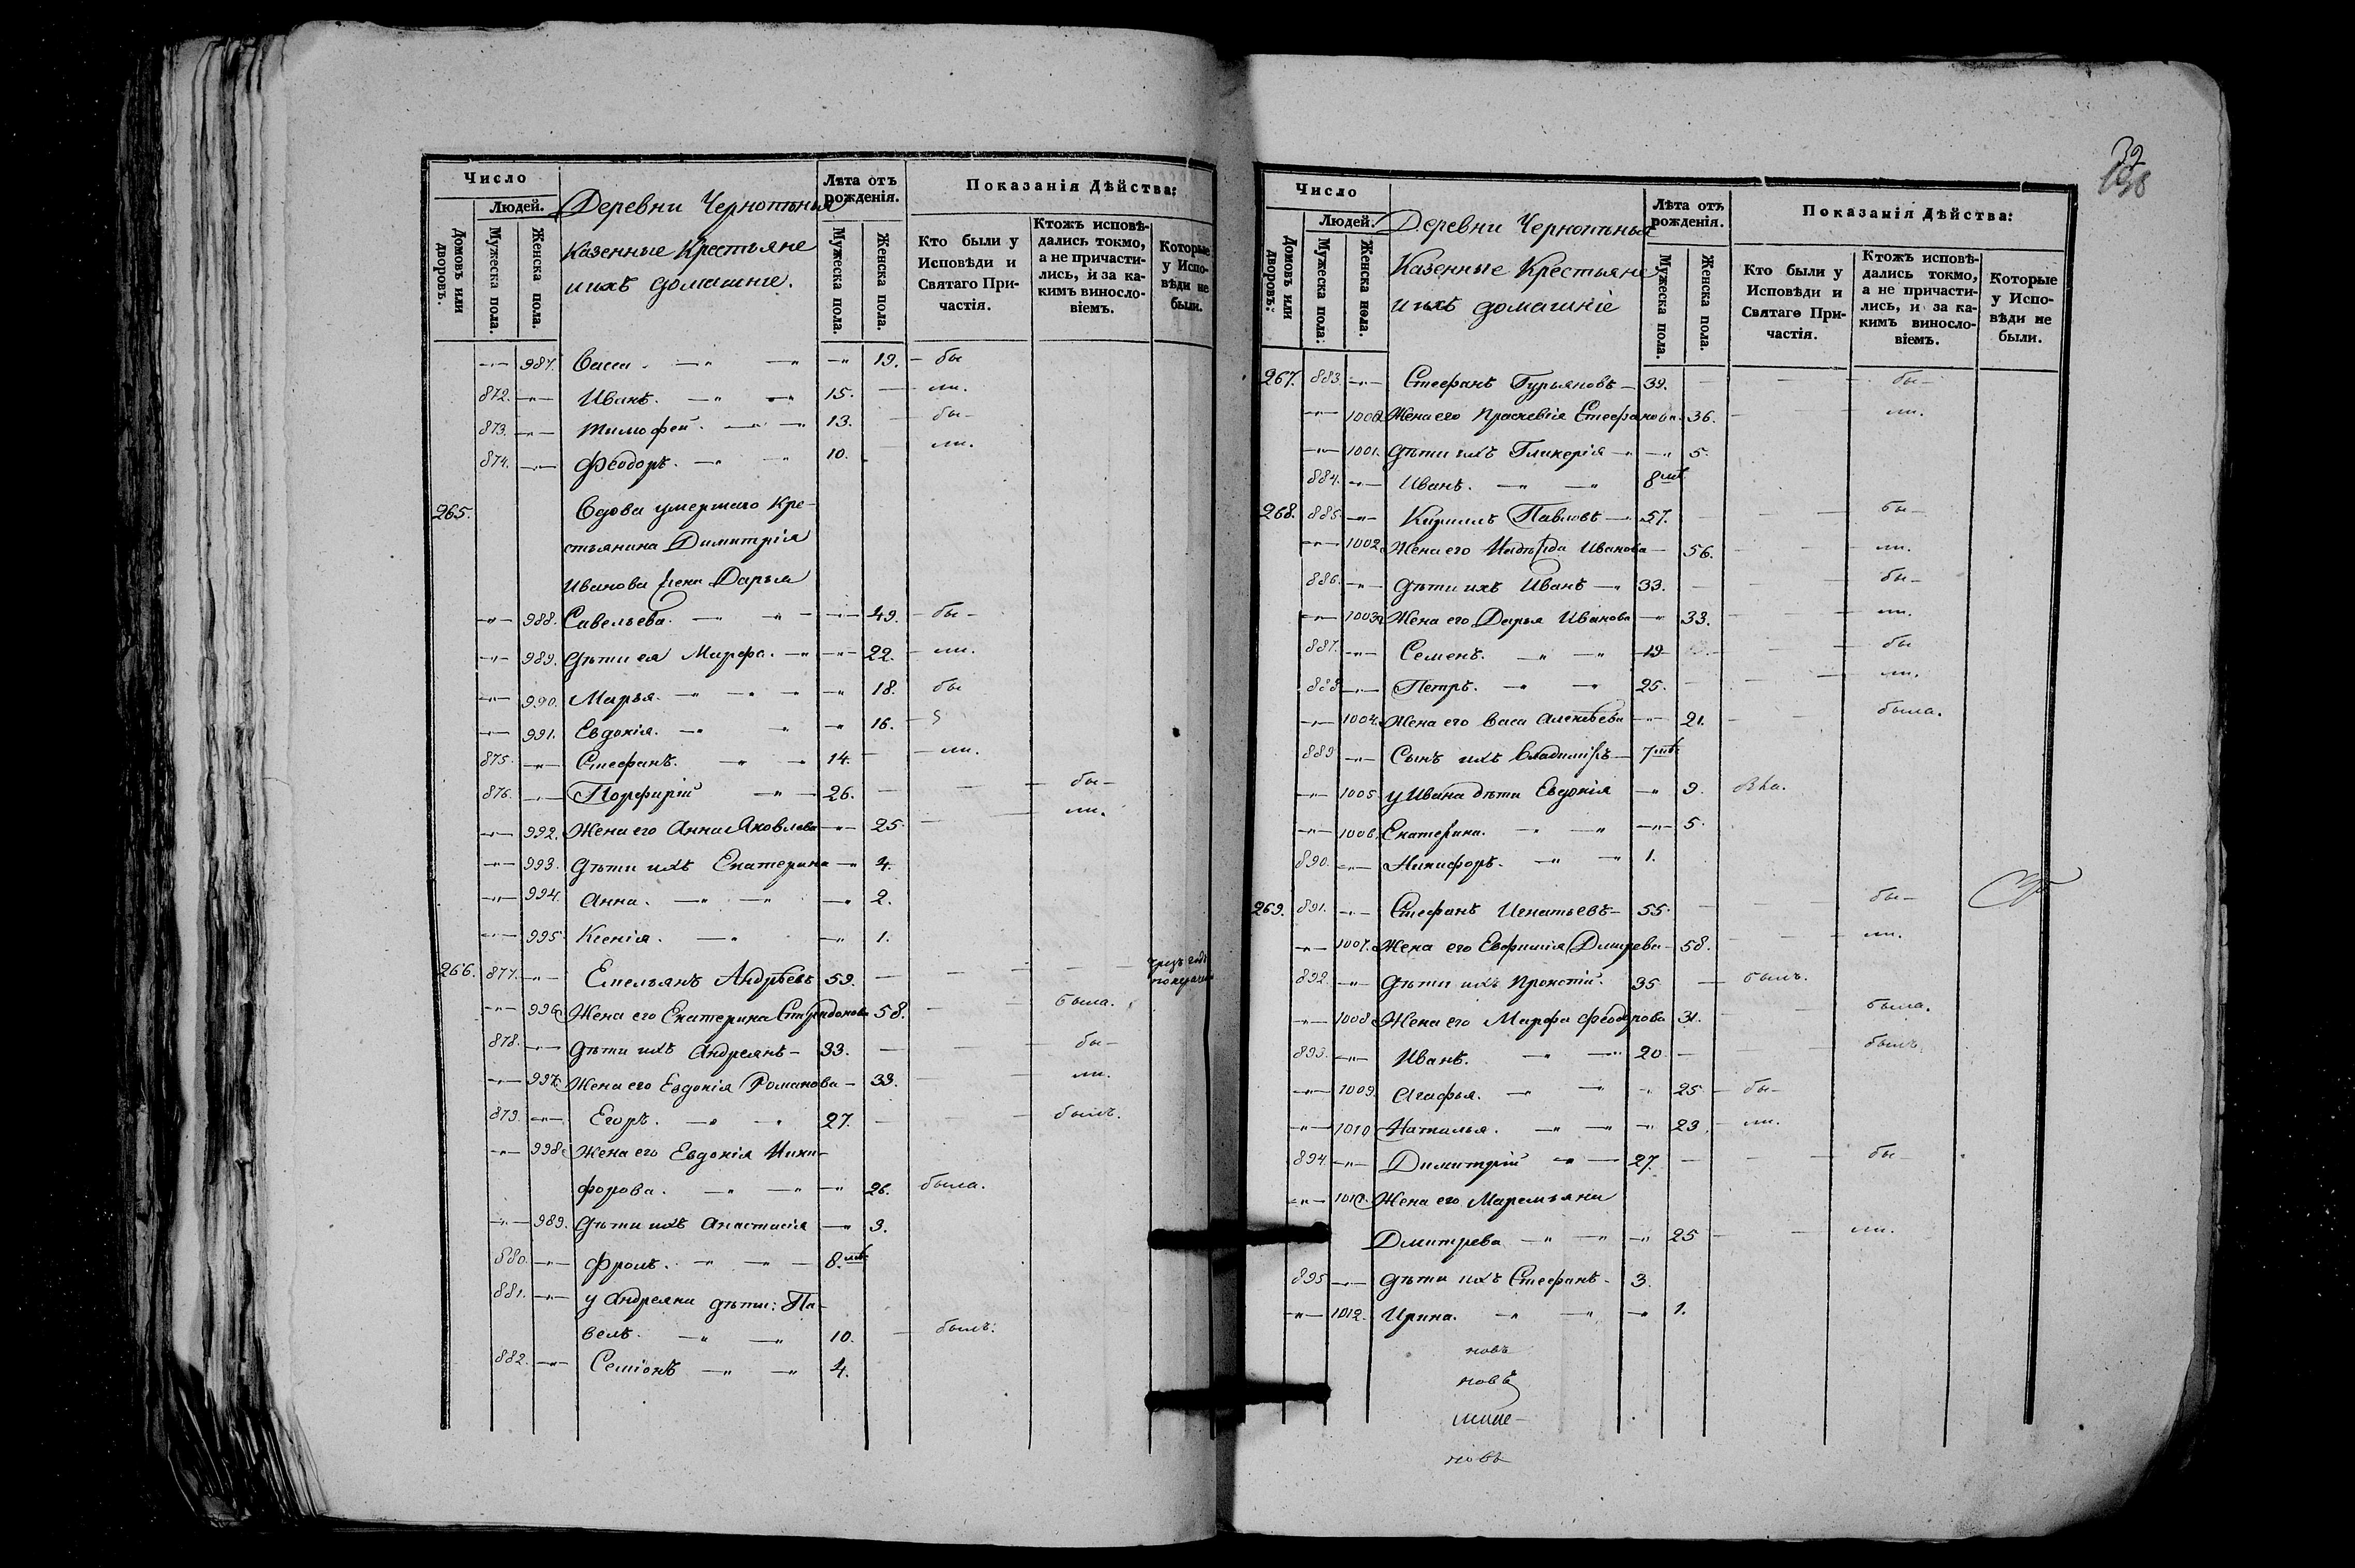 Число
Людей.
Домовъ или дворовъ.
Мужеска пола.
Женска пола.
Деревни Чернопенья
Казенные Крестьяне
и ихъ домашние.
Лѣта отъ рожденія.
Мужеска пола.
Женска пола.
Показанія Дѣйства:
Кто были у Исповѣди и Святаго Причастія.
Ктожъ исповѣдались токмо, а не причастились, и за какимъ винословіемъ.
Которые у Исповѣди не были.
987. Васса. 19. бы
872. Иванъ. 15. ли.
873. Тимофей. 13. бы-
874. Феодоръ. 10. ли.
265. Вдова умершаго Кре-
стьянина Димитрія
Иванова жена Дарья
988. Савельева. 49. бы-
989. Дѣти ея Марфа. 22. ли.
990. Марья. 18. бы
991. Евдокія. 16.
875. Стефанъ. 14. ли.
876. Порфирій 26. бы-
992. Жена его Анна Яковлева 25. ли.
993. Дѣти ихъ Екатерина 4.
994. Анна. 2.
995. Ксенія. 1.
266. 877. Емельянъ Андрѣевъ 59.
996. Жена его Екатерина Спиридонова 58. была.
878. Дѣти ихъ Андреянъ 33. бы-
997. Жена его Евдокія Романова 33. ли.
879. Егоръ. 27. былъ.
998. Жена его Евдокія Ники-
форова. 26. была.
989. Дѣти ихъ Анастасія 3.
880. Фролъ. 8. мѣ
881. у Андреяна дѣти: Па-
велъ. 10. былъ.
882. Семіонъ 4.
39
Число
Людей.
Домовъ или дворовъ.
Мужеска пола.
Женска пола.
Деревни Чернопенья
Казенные Крестьяне
и ихъ домашніе
Лѣта отъ рожденія.
Мужеска пола.
Женска пола.
Показанія Дѣйства:
Кто были у Исповѣди и Святаго Причастія.
Ктожъ исповѣдались токмо, а не причастились, и за какимъ винословіемъ.
Которые у Исповѣди не были.
267. 883. Стефанъ Гурьяновъ 39. бы-
1000. Жена его Праскевія Стефанова. 36. ли.
1001. Дѣти ихъ Гликерія 5.
884. Иванъ. 8 мѣ
268. 885. Кириллъ Павловъ 57. бы-
1002. Жена его Надѣжда Иванова 56. ли.
886. Дѣти ихъ Иванъ 33. бы-
1003. Жена его Дарья Иванова 33. ли.
887. Семенъ. 19 бы
888. Петръ. 25. ли.
1004. Жена его Васа Алексѣева 21. была.
889 Сынъ ихъ Владиміръ 7 мѣ
1005. у Ивана дѣти Евдокія 9.
1006. Екатерина. 5.
890. Никифоръ. 1.
269. 891. Стефанъ Игнатьевъ 55. бы-
1007. Жена его Евфимія Дмитрева 58. ли.
892. Дѣти ихъ Прокопій. 35 былъ.
1008. Жена его Марфа Феодорова 31. была.
893. Иванъ. 20. былъ
1009. Агафья. 25 бы-
1010 Наталья. 23. ли.
894. Димитрій 27. бы-
Жена его Маремьяна
Дмитрева 25 ли.
895 Дѣти ихъ Стефанъ 3.
1012. Ирина. 1.
новъ
новъ
новъ